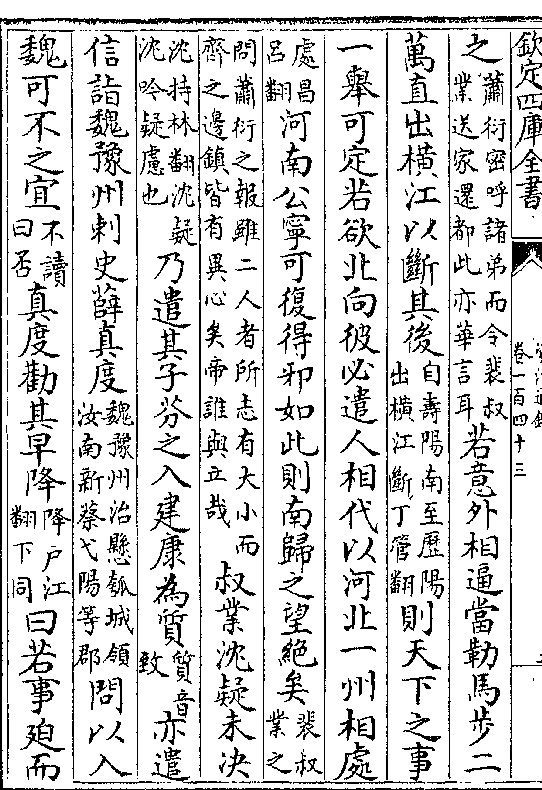 欽定四庫全書
卷一百四十三
之蕭衍密呼諸弟而令裴叔業送家還都此亦華言耳若意外相逼當勒馬步二
萬直出橫江以斷其後自壽陽南至歷陽出橫江斷丁管翻則天下之事
一舉可定若欲北向彼必遣人相代以河北一州相處
處昌呂翻河南公寧可復得邪如此則南歸之望絕矣裴叔業之
問蕭衍之報雖二人者所志有大小而齊之邊鎮皆有異心矣帝誰與立哉叔業沈疑未決
沈持林翻沈疑沈吟疑慮也乃遣其子芬之入建康為質質音致亦遣
信詣魏豫州刺史薛真度魏豫州治懸瓠城領汝南新蔡弋陽等郡問以入
魏可不之宜不讀曰否真度勸其早降降户江翻下同曰若事迫而